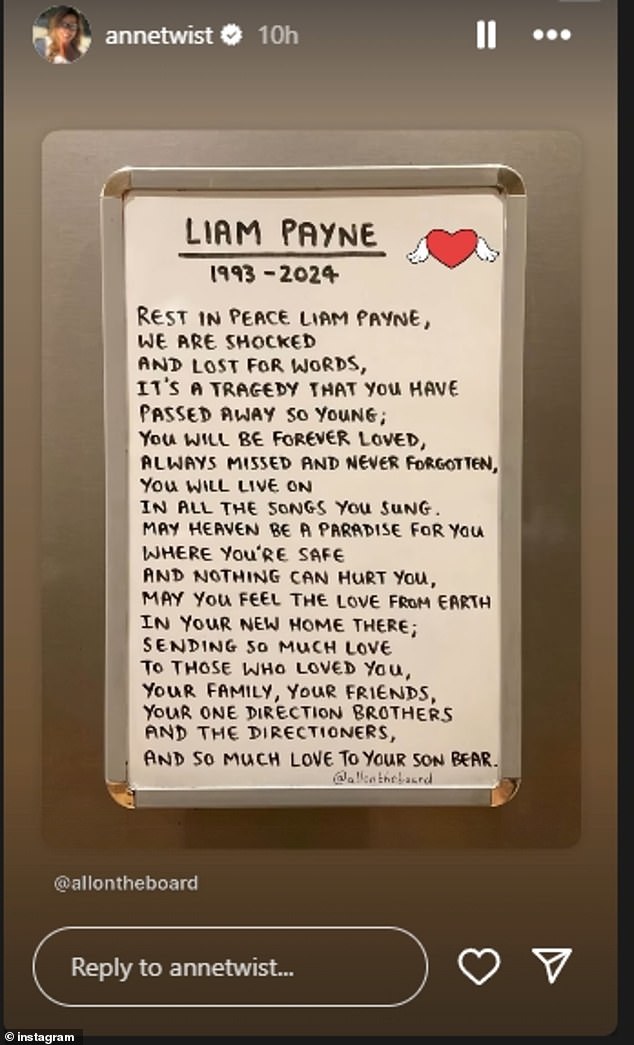 annetwist 10h
LIAM PAYNE
1993-2024
REST IN PEACE LIAM PAYNE,
WE ARE SHOCKED
AND LOST FOR WORDS,
IT'S A TRAGEDY THAT YOU HAVE
PASSED AWAY SO YOUNG;
YOU WILL BE FOREVER LOVED,
ALWAYS MISSED AND NEVER FORGOTTEN,
YOU WILL LIVE ON
IN ALL THE SONGS YOU SUNG.
MAY HEAVEN BE A PARADISE FOR YOU
WHERE YOU'RE SAFE
AND NOTHING CAN HURT YOU,
MAY YOU FEEL THE LOVE FROM EARTH
IN YOUR NEW HOME THERE;
SENDING SO MUCH LOVE
TO THOSE WHO LOVED YOU,
YOUR FAMILY, YOUR FRIENDS,
YOUR ONE DIRECTION BROTHERS
AND THE DIRECTIONERS,
AND SO MUCH LOVE TO YOUR SON BEAR.
@allontheboard
@allontheboard
Reply to annetwist...
© instagram